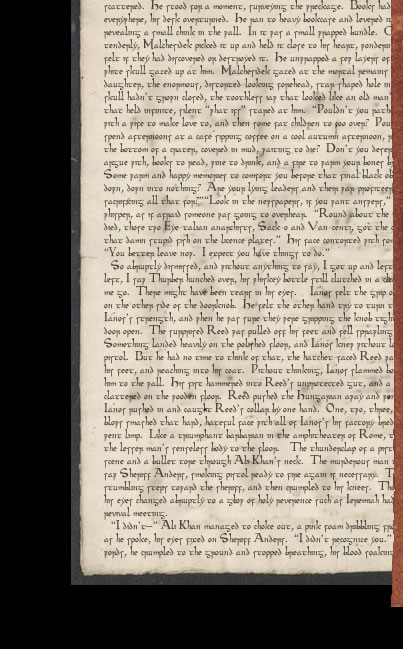 scattered. He stood for a moment, surveying the wreckage. Books had
everywhere, his desk overturned. He ran to heavy bookcase and levered
revealing a small chink in the wall. In it was a small wrapped bundle. C
tenderly, Malcherdek picked it up and held it close to his heart, wonderin
felt if they had discovered or destroyed it. He unwrapped a few layers of
white skull gazed up at him. Malcherdek gazed at the mortal remains
daughter, the enormous, distorted-looking forehead, star-shaped hole in
skull hadn't grown closed, the toothless gap that looked like an old man
that held infinite, silent "what ifs" stared at him. "Wouldn't you rath
with a wife to make love to, and then some fat children to goo over? Wou
spend afternoons at a cafe sipping coffee on a cool autumn afternoon,
the bottom of a crater, covered in mud, waiting to die? Don't you deser
argue with, books to read, wine to drink, and a fire to warm your boney b
Some warm and happy memories to comfort you before that final black ob
down, down into nothing? Are your lying leaders and their war profiteer
sacrificing all that for?" "Look in the newspapers, if you want answers,"
whisper, as if afraid someone was going to overhear. "Round about the
died, those two Eye-talian anarchists, Sack-o and Van-centy, got the c
that damn stupid fish on the license plates." His face contorted with
"You better leave now. I expect you have things to do."
So abruptly dismissed, and without anything to say, I got up and left
left, I saw Thurber hunched over, his whiskey bottle still clutched in a
me go. There might have been tears in his eyes. Ianos felt the grip o
on the other side of the doorknob. He felt the other hand try to turn it
Ianos's strength, and when he was sure they were gripping the knob tigh
door open. The surprised Reed was pulled off his feet and fell sprawling
Something landed heavily on the polished floor, and Ianos knew without l
pistol. But he had no time to think of that, the hatchet-faced Reed wa
his feet, and reaching into his coat. Without thinking, Ianos slammed
him to the wall. His fist hammered into Reed's unprotected gut, and a
clattered on the wooden floor. Reed pushed the Hungarian away and
Ianos rushed in and caught Reed's collar by one hand. One, two, three,
blows smashed that hard, hateful face with all of Ianos's factory bred
went limp. Like a triumphant barbarian in the amphitheater of Rome,
the lesser man's senseless body to the floor. The thunderclap of a
scene and a bullet tore through Ab Khan's neck. The murderous man
saw Sheriff Anders, smoking pistol ready to fire again if necessary. T
stumbling steps toward the sheriff, and then crumpled to his knees. Th
his eyes changed abruptly to a glow of holy reverence such as Jeremiah had
revival meeting.
"I didn't—" Ab Khan managed to choke out, a pink foam dribbling
as he spoke, his eyes fixed on Sheriff Anders. "I didn't recognize you."
words, he crumpled to the ground and stopped breathing, his blood soakin